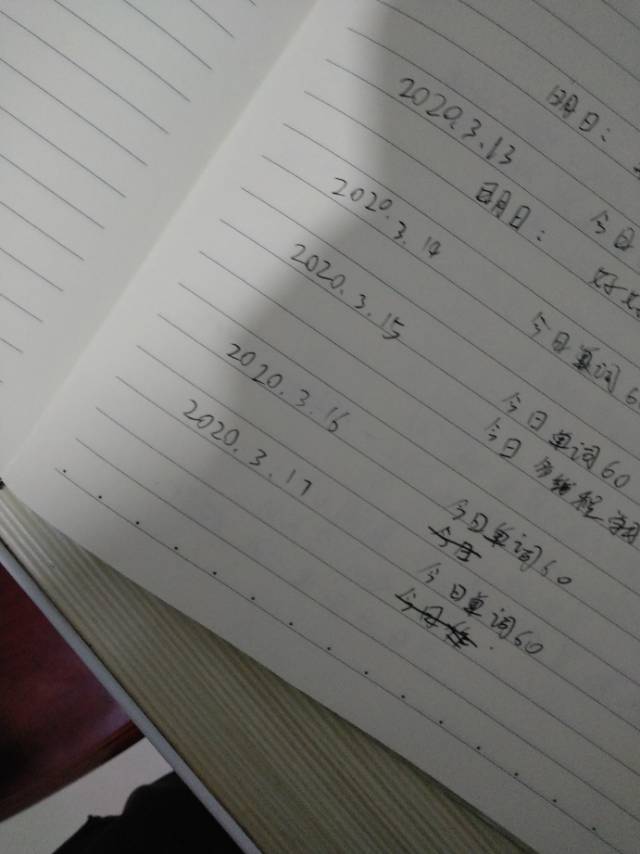 明日:
2020.3.13
今日
明日:
好好
2020.3.14
今日单词6
2020.3.15
今日单词60
今日多线程
2020.3.16
今日单词60
2020.3.17
今日单词60